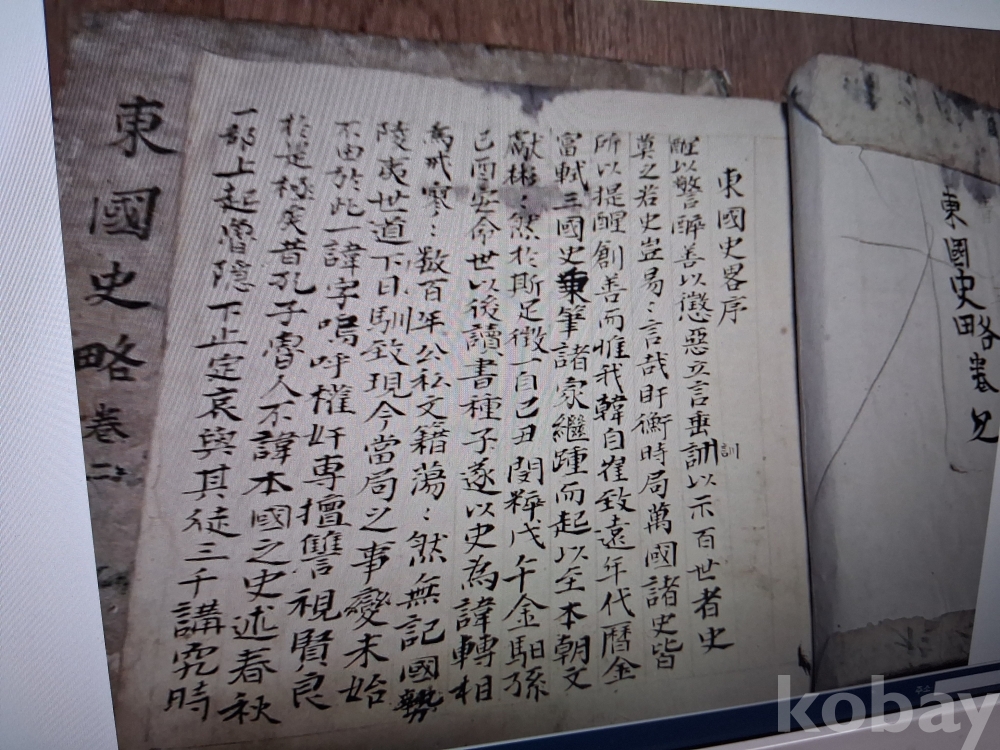 東國史略卷
東國史畧序
醒以警醉善以懲惡立言垂訓以示百世者史
訓
莫之若史豈易〻言哉盱衡時局萬國諸史皆
所以提醒創善而惟我韓自崔致遠年代曆金
富軾三國史秉筆諸家繼踵而起以至本朝文
獻彬〻然於斯足徵一自己丑閔粹戊午金馹孫
己酉安命世以後讀書種子遂以史為諱轉相
為戒寥〻數百年公私文籍蕩〻然無記國勢
陵夷世道下日馴致現今當局之事變未始
不由於此一諱字嗚呼權奸專擅讐視賢良
於是極矣昔孔子魯人不諱本國之史述春秋
一部上起魯隱下止定哀與其徒三千講究時
東國史略卷
kobay